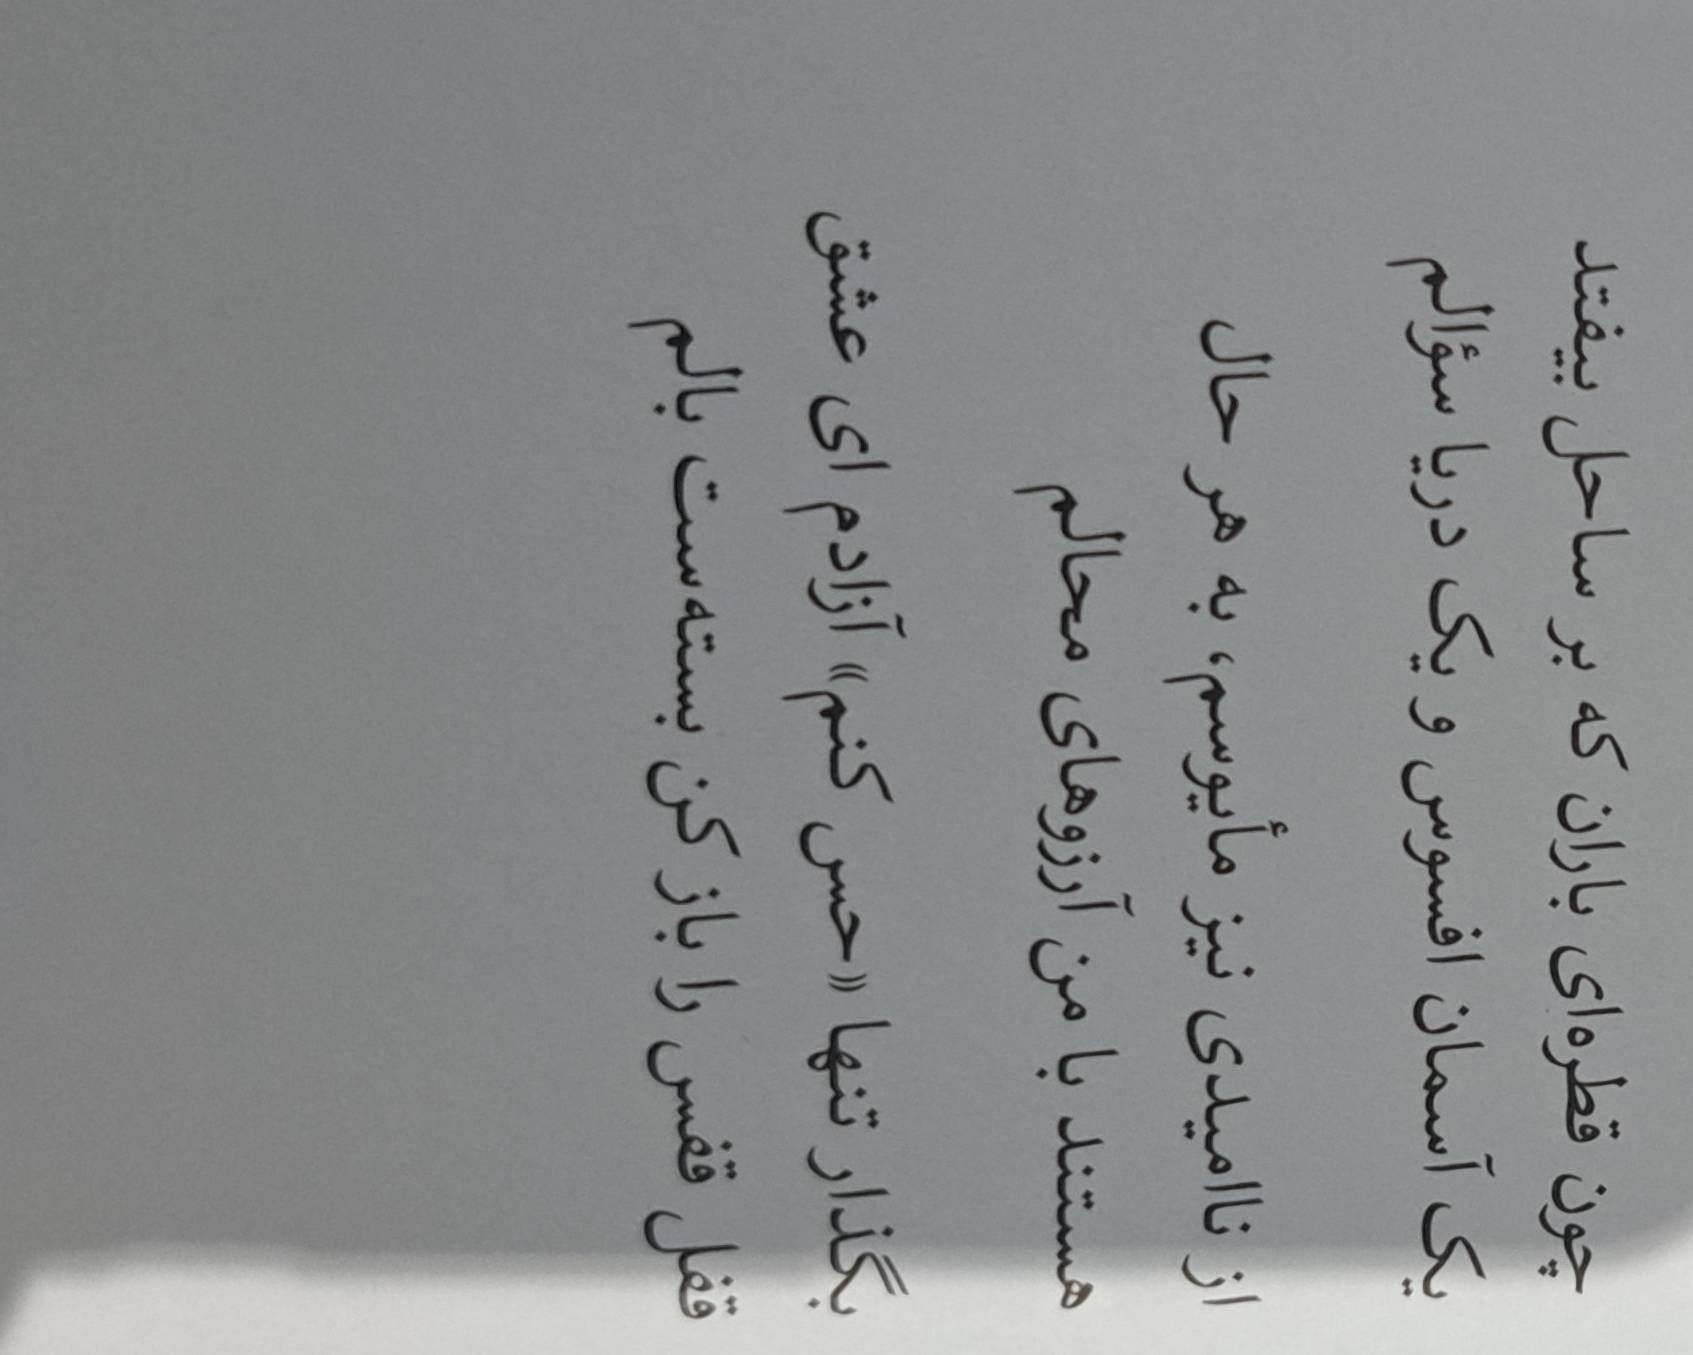 چون قطره‌ای باران که بر ساحل بیفتد
یک آسمان افسوس و یک دریا سؤالم
از ناامیدی نیز مأیوسم، به هر حال
هستند با من آرزوهای محالم
بگذار تنها «حس کنم» آزادم ای عشق
قفل قفس را باز کن بسته‌ست بالم